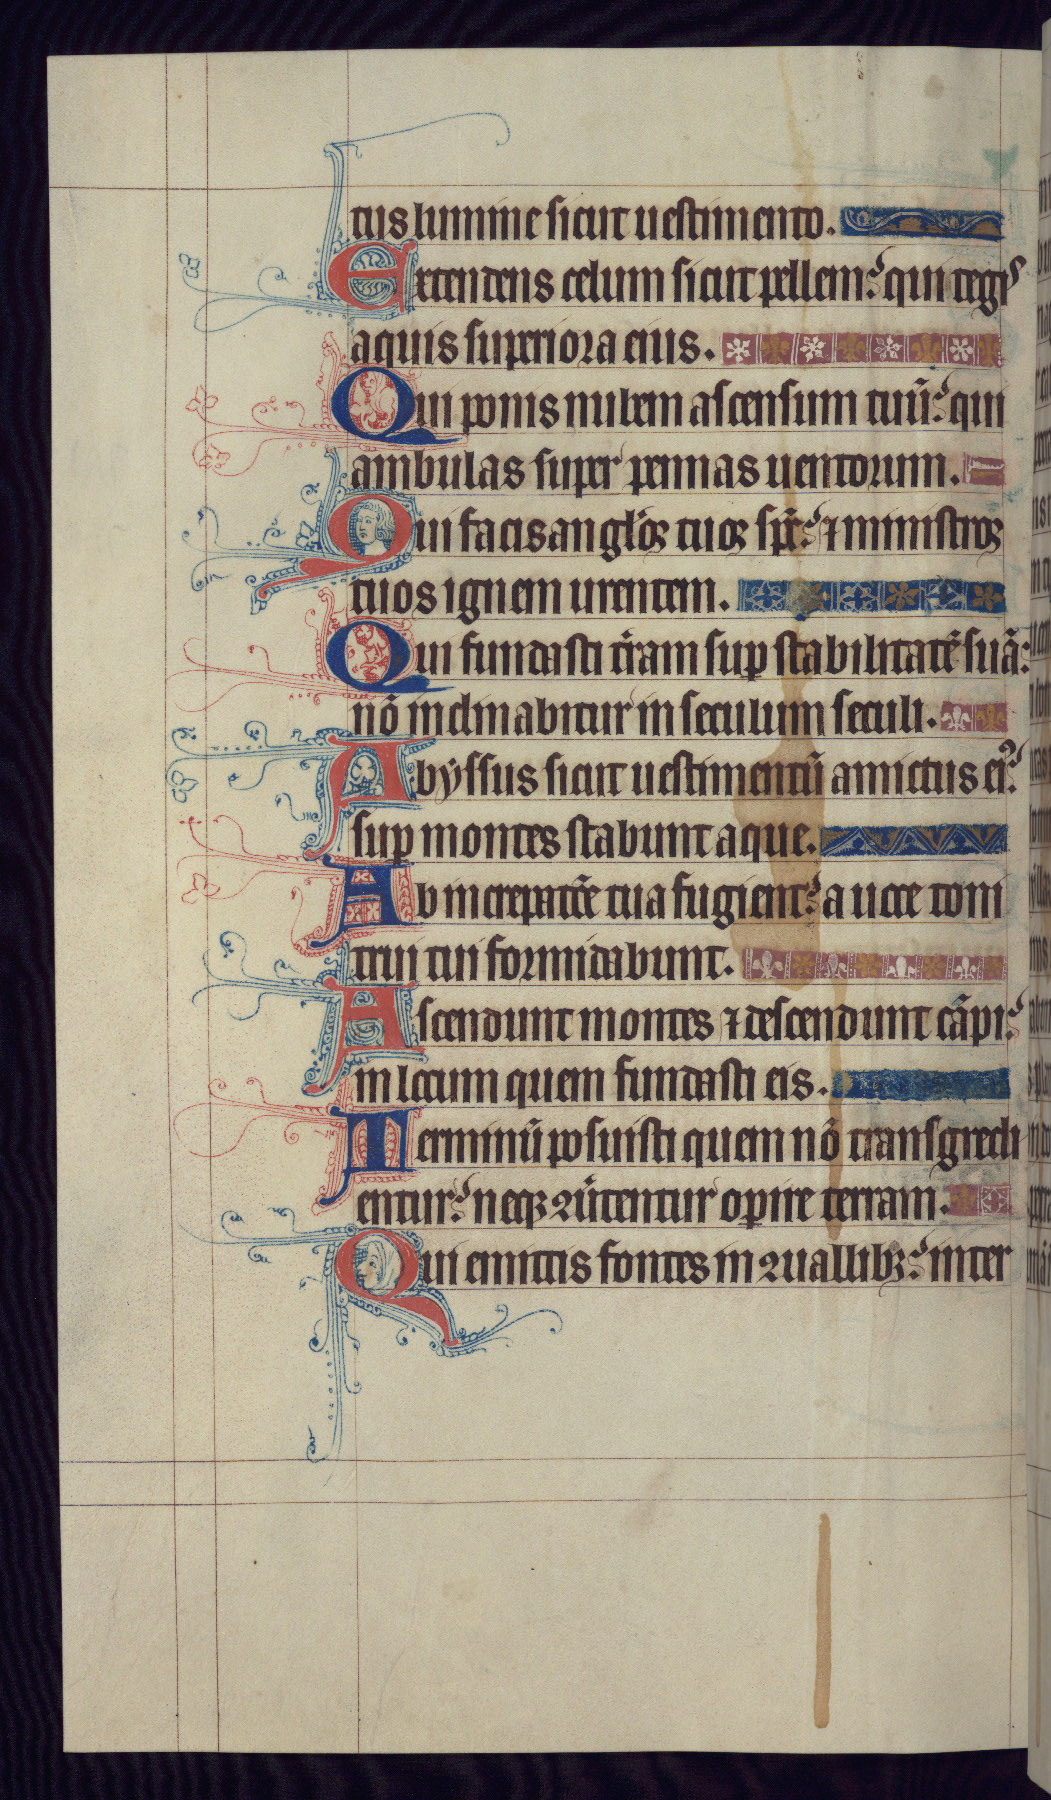 tus lumine sicut uestimento.
Extendens celum sicut pellem: qui tegis
aquis superiora eius.
Qui ponis nubem ascensum tuū: qui
ambulas super pennas uentorum.
Qui facis anglos tuos spc̄: ⁊ ministros
tuos ignem urentem.
Qui fundasti t̄ram sup stabilitatē suā:
nō inclinabitur in seculum seculi.
Abyssus sicut uestimentū amictus ei⁹:
sup montes stabunt aque.
Ab increpatōe tua fugient: a uoce toni
trui tui formidabunt.
Ascendunt montes ⁊ descendunt cāpi:
in locum quem fundasti eis.
Terminū posuisti quem nō transgredi
entur: neqꝫ ꝯūtentur operire terram.
Qui emittis fontes in ꝯuallibꝫ: inter